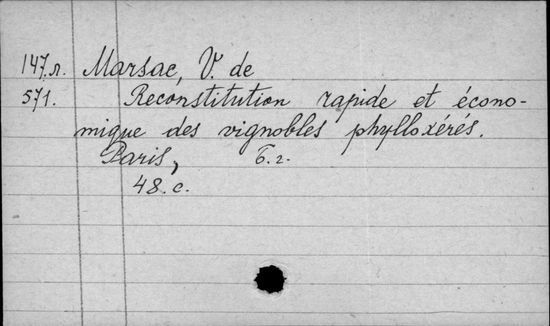 147.л. Marsac, V. de
571. Reconstitution rapide et écono-
mique des vignobles phylloxérés.
Paris, Б.г.
48.с.